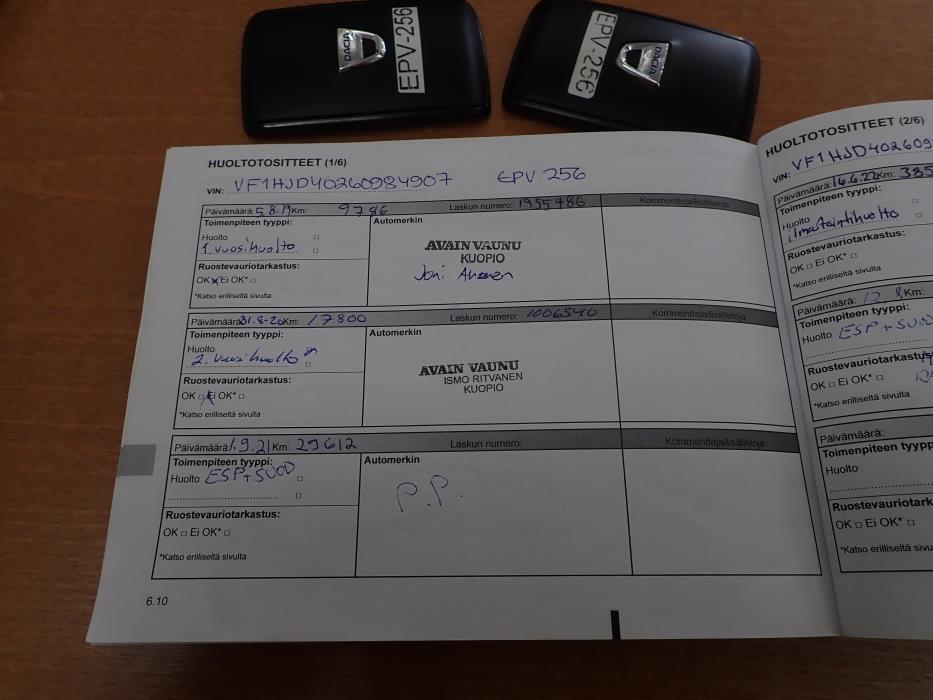 DACIA
EPV-256
EPV-256
DACIA
HUOLTOTOSITTEET (1/6)
VIN: VF1HJD40260984907 EPV-256
Päivämäärä: 5.8.19 Km: 9786 Laskun numero: 1955486 Kommentteja/lisätietoja
Toimenpiteen tyyppi:
Huolto
1. vuosihuolto
Ruostevauriotarkastus:
OK Ei OK*
*Katso erilliseltä sivulta
Automerkin
AVAIN VAUNU
KUOPIO
Joni Ahonen
Päivämäärä: 31.8-20 Km: 17800 Laskun numero: 1006540 Kommentteja/lisätietoja
Toimenpiteen tyyppi:
Huolto
2. vuosihuolto
Ruostevauriotarkastus:
OK Ei OK*
*Katso erilliseltä sivulta
Automerkin
AVAIN VAUNU
ISMO RITVANEN
KUOPIO
Päivämäärä: 1.9.21 Km: 29612 Laskun numero: Kommentteja/lisätietoja
Toimenpiteen tyyppi:
Huolto ESP+SUOD
Ruostevauriotarkastus:
OK Ei OK*
*Katso erilliseltä sivulta
Automerkin
P.P.
6.10
HUOLTOTOSITTEET (2/6)
VIN: VF1HJD402609
Päivämäärä: 16.6.22 Km: 385
Toimenpiteen tyyppi:
Huolto
ilmastointihuolto
Ruostevauriotarkastus:
OK Ei OK*
*Katso erilliseltä sivulta
Päivämäärä: 12.8 Km:
Toimenpiteen tyyppi:
Huolto ESP+SUOD
Ruostevauriotarkastus
OK Ei OK*
*Katso erilliseltä sivulta
Päivämäärä:
Toimenpiteen tyypp
Huolto
Ruostevauriotark
OK Ei OK*
*Katso erilliseltä sivu